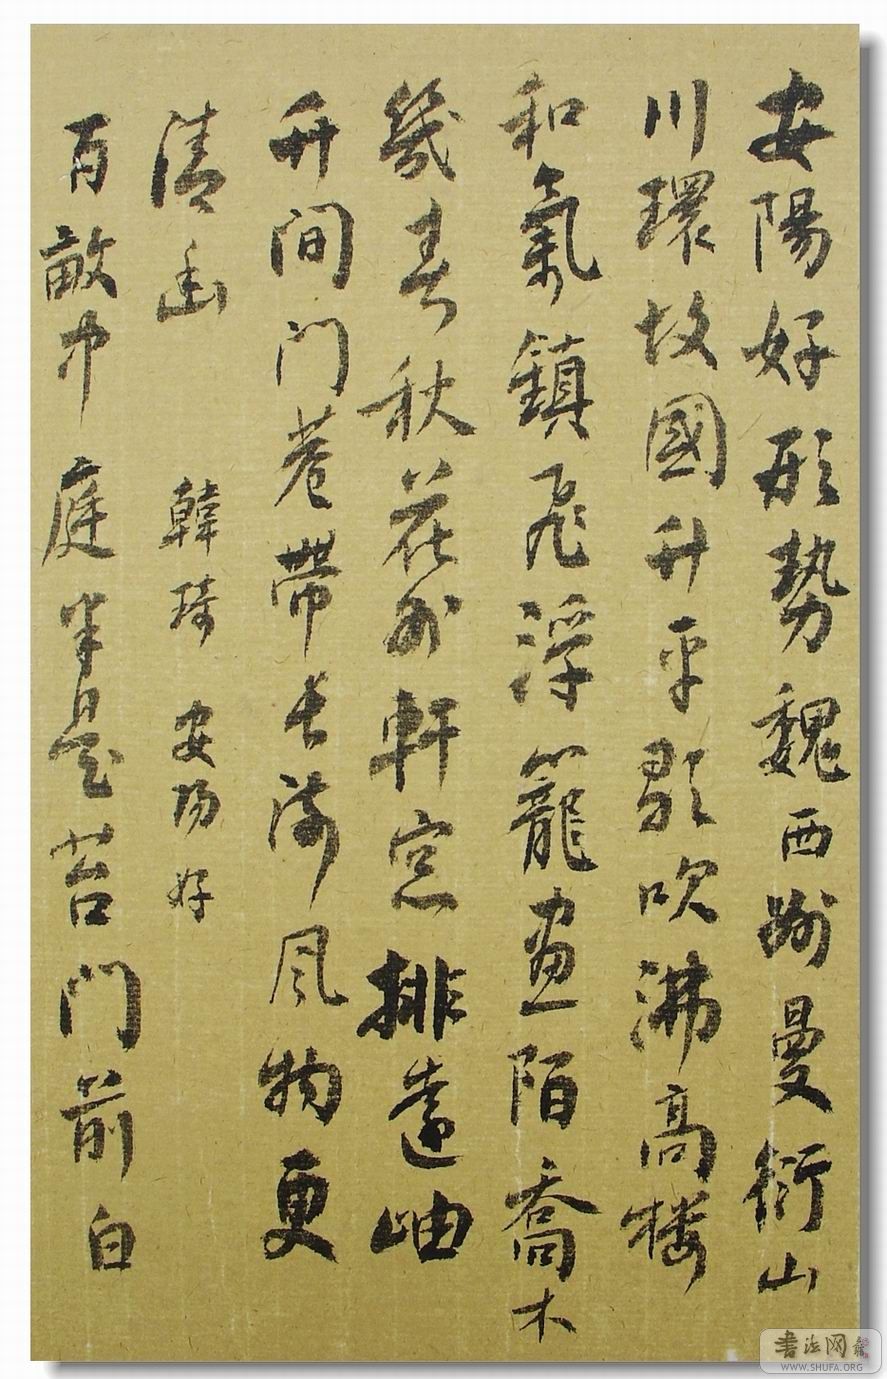 安陽好形勢魏西州曼衍山
川環故國升平歌吹沸高楼
和氣鎮飛浮籠畫陌喬木
幾春秋花外軒窓排遠岫
竹间门巷帶長流风物更
清幽 韓琦 安阳好
百畝中庭半是苔门前白
書法网
WWW.SHUFA.ORG